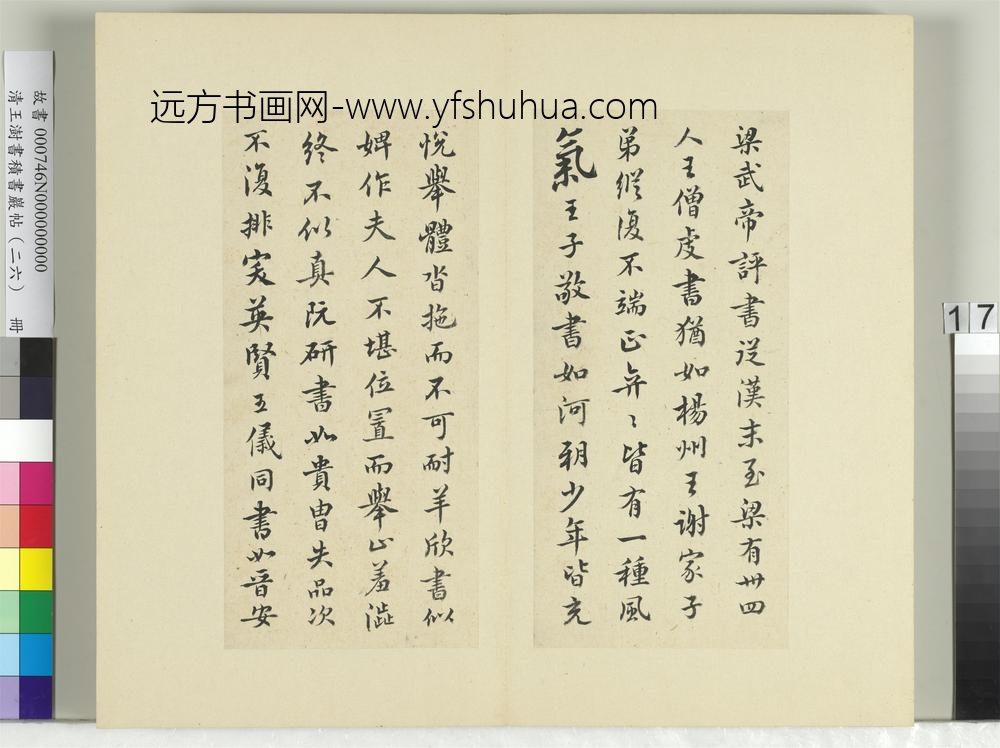 远方书画网-www.yfshuhua.com
梁武帝評書從漢末至梁有卅四
人王僧虔書猶如楊州王謝家子
弟縱復不端正弈〻皆有一種風
氣王子敬書如河朔少年皆充
悅舉體沓拖而不可耐羊欣書似
婢作夫人不堪位置而舉止羞澁
終不似真阮研書如貴胄失品次
不復排突英賢王儀同書如晉安
故書 000746N000000000
清王澍書積書巖帖(二六) 冊
17